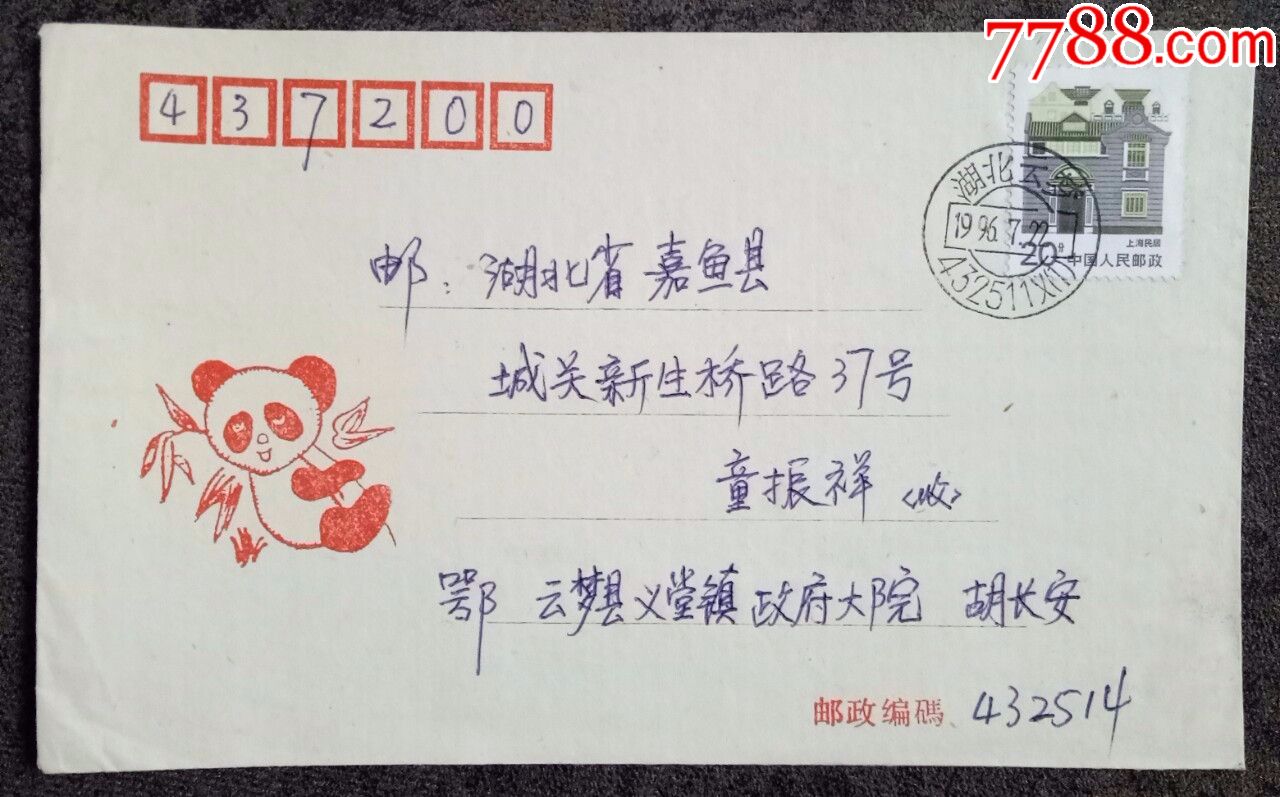 7788.com
437200
上海民居
20分
中国人民邮政
湖北云梦
1996.7.22
432511义(1)
邮：湖北省嘉鱼县
城关新生桥路37号
童振祥〈收〉
鄂 云梦县义堂镇政府大院 胡长安
邮政编碼 432514